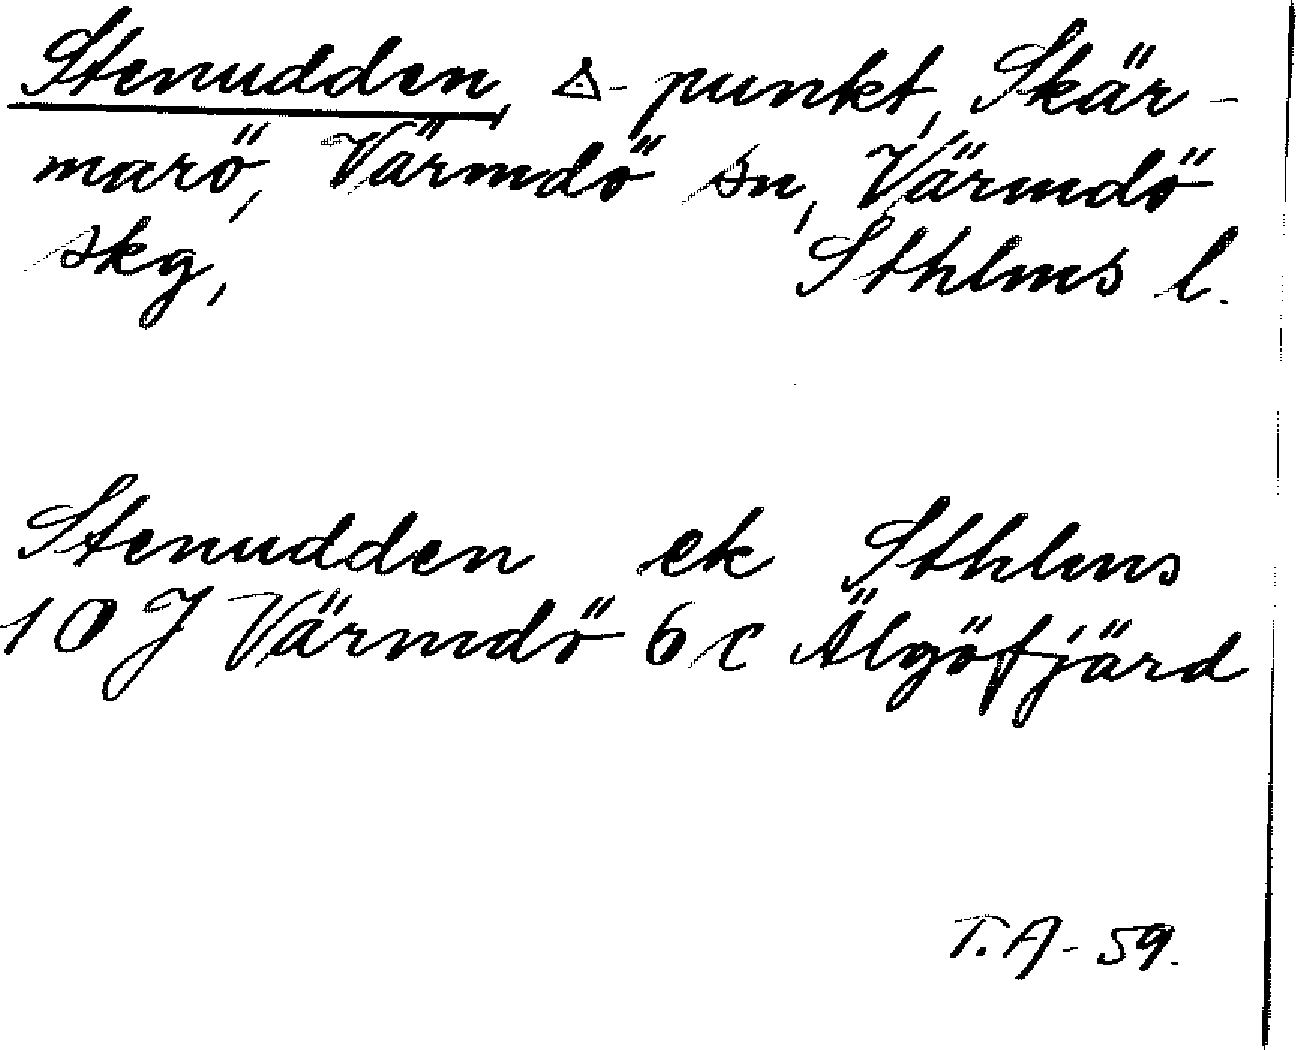 Stenudden, △-punkt, Skär-
marö, Värmdö sn, Värmdö
skg, Sthlms l.
Stenudden ek Sthlms
10 J Värmdö 6 c Älgöfjärd
T.A-59.